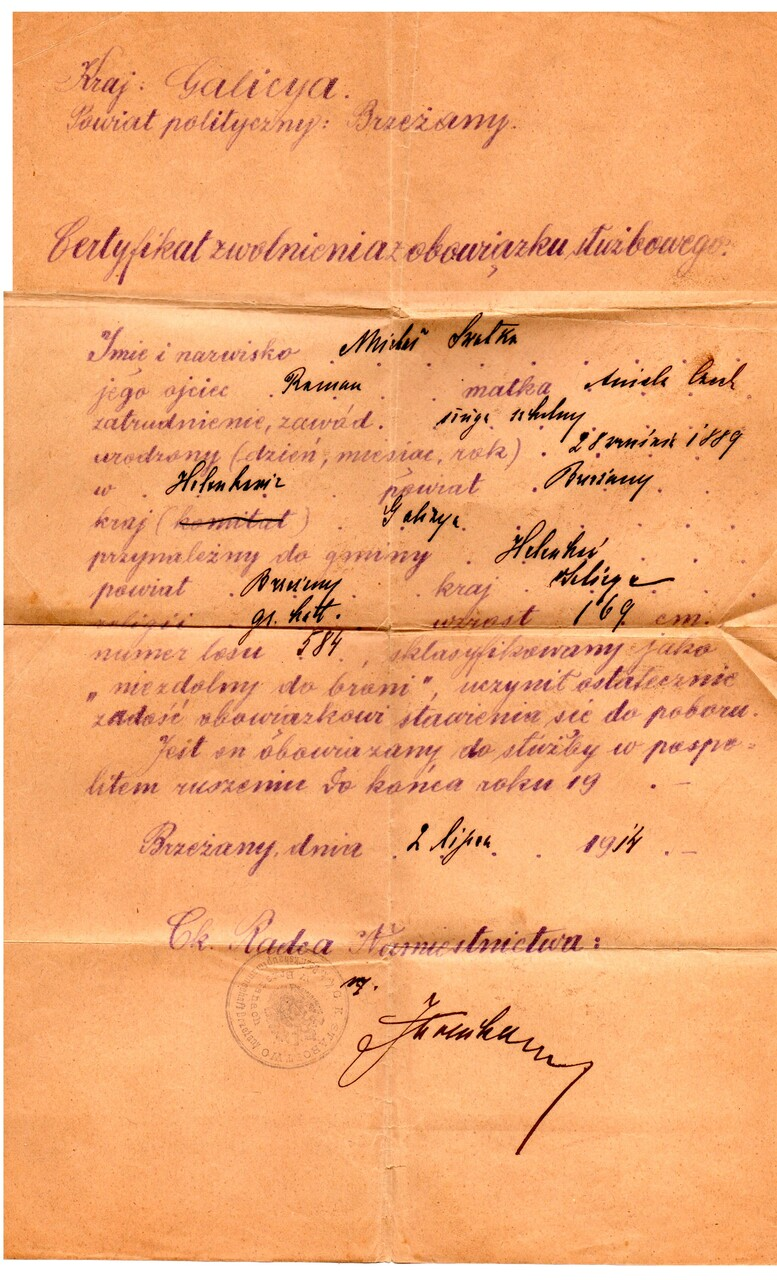 Kraj: Galicya.
Powiat polityczny: Brzeżany.
Certyfikat zwolnienia z obowiązku służbowego.
Imię i nazwisko
jego ojciec Roman matka Aniela
zatrudnienie, zawód. sługa szkolny
urodzony (dzień, miesiac, rok) 28 września 1889
w powiat Brzeżany
kraj (komitat) Galicya
przynależny do gminy
powiat Brzeżany kraj Galicya
religii gr. kat. wzrost 169 cm.
numer losu 584, sklasyfikowany jako
„niezdolny do broni", uczynił ostatecznie
zadość obowiązkowi stawienia się do poboru.
Jest on obowiazany do służby w pospo-
litem ruszeniu do końca roku 19 . —
Brzeżany, dnia 2 lipca 1914 . —
Ck. Radca Namiestnictwa: